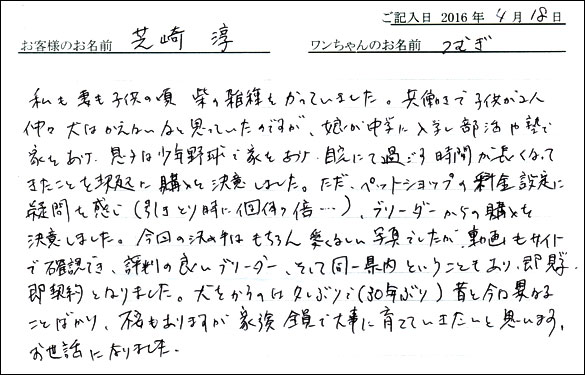 ご記入日 2016年 4月 18日
お客様のお名前 芝崎 淳 ワンちゃんのお名前 つむぎ
私も妻も子供の頃 柴の雑種をかっていました。共働きで子供が2人
仲々犬はかえないなと思っていたのですが、娘が中学に入学し部活や塾で
家をあけ、息子は少年野球で家をあけ、自宅にて過ごす時間が長くなって
きたことを契起に購入を決意しました。ただ、ペットショップの料金設定に
疑問を感じ(引きとり時に1回何倍…)、ブリーダーからの購入を
決意しました。今回の決め手はもちろん愛くるしい写真でしたが、動画もサイト
で確認でき、評判の良いブリーダー、そして同一県内ということもあり、即見学
即契約となりました。犬をかうのは久しぶりで(30年ぶり)昔と今は異なる
ことばかり、不安もありますが家族全員で大事に育てていきたいと思います。
お世話になりました。